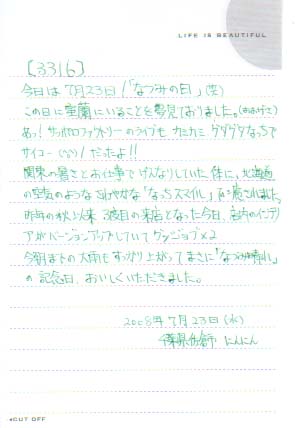 LIFE IS BEAUTIFUL
[3316]
今日は7月23日!「なつみの日」(笑)
この日に室蘭にいることを夢見ておりました。(おおげさ)
あっ!サッポロファクトリーのライブも カミカミ、グダグダなっちで
サイコー だったよ!!
関東の暑さとお仕事でげんなりしていた体に、北海道
の空気のようなさわやかな「なっちスマイル」で癒されました。
昨年の秋以来 3度目の来店となった今日、店内のインテリ
アがバージョンアップしていてグッジョブ×2
今朝までの大雨もすっかり上がってまさに「なつみ晴れ」
の記念日、おいしくいただきました。
2008年7月23日(水)
千葉県 にんにん
◂CUT OFF